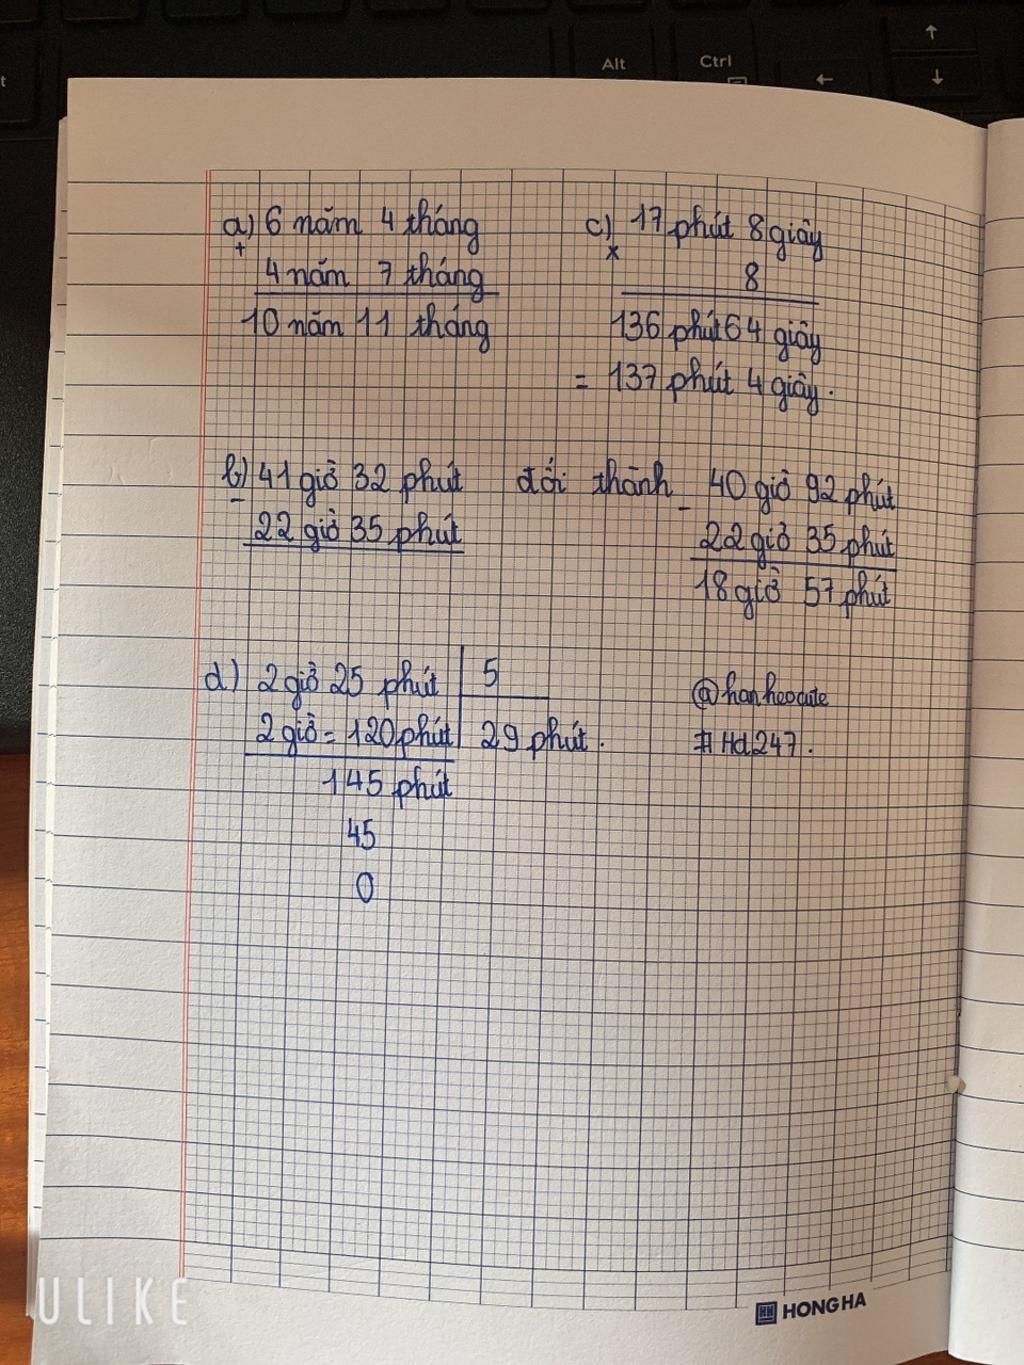 Alt
Ctrl
a) 6 năm 4 tháng
+
4 năm 7 tháng
10 năm 11 tháng
c) 17 phút 8 giây
x
8
136 phút 64 giây
= 137 phút 4 giây.
b) 41 giờ 32 phút đổi thành 40 giờ 92 phút
- -
22 giờ 35 phút 22 giờ 35 phút
18 giờ 57 phút
d) 2 giờ 25 phút 5
2 giờ = 120 phút 29 phút.
145 phút
45
0
@hanheocute
#Hd247.
ULIKE
HH HONG HA